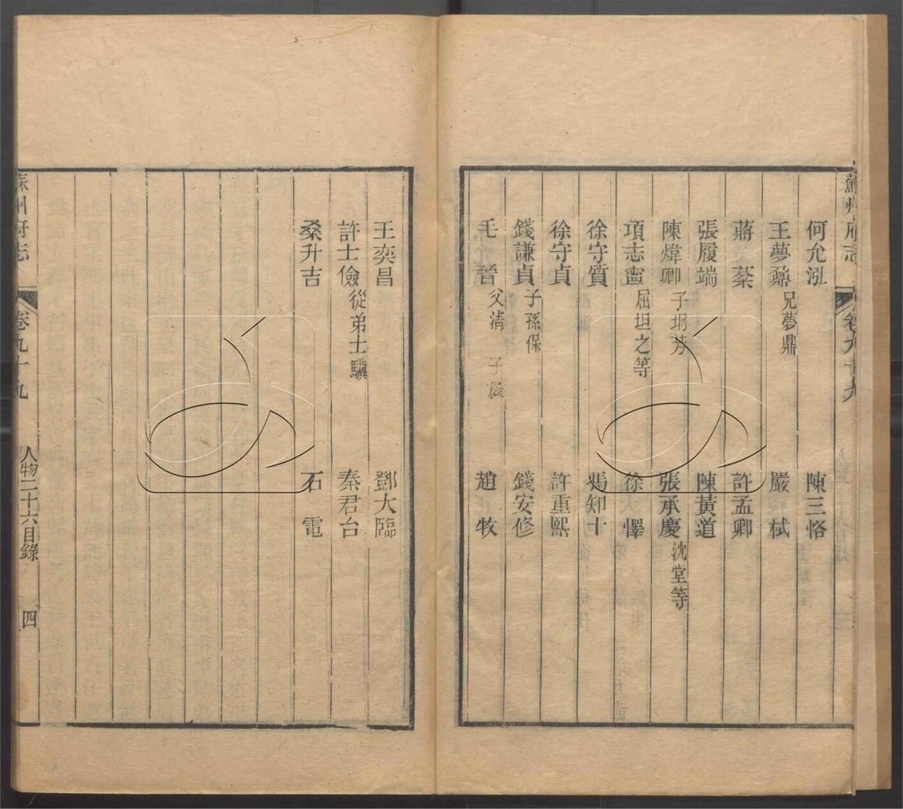 蘇州府志 卷九十九
何允泓 陳三恪
王夢鼐 兄夢鼎 嚴栻
蔣棻 許孟卿
張履端 陳黃道
陳煒卿 子坰芳 張承慶 沈堂等
項志寧 屈坦之等 徐懌
徐守質 馮知十
徐守貞 許重熙
錢謙貞 子孫保 錢安修
毛晉 父清 子扆 趙牧
王奕昌 鄧大臨
許士儉 從弟士驥 秦君台
桑升吉 石電
蘇州府志 卷九十九 人物二十六目錄 四